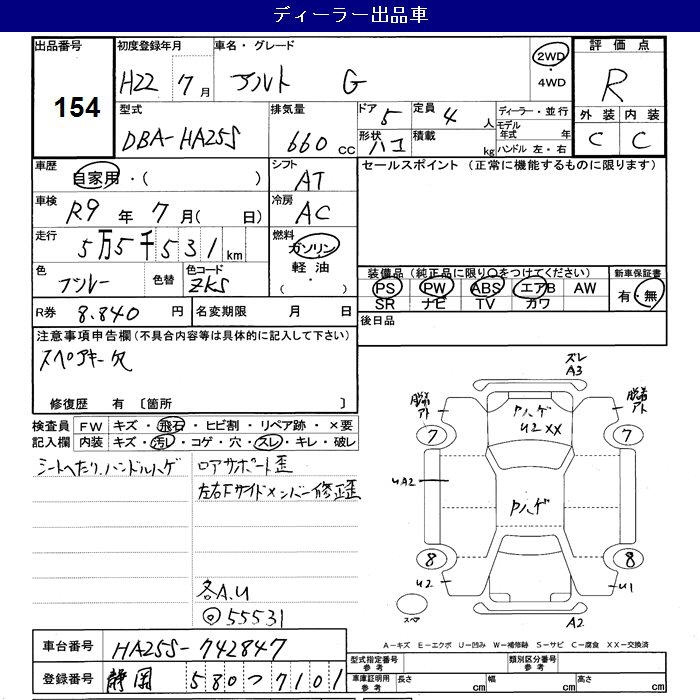 ディーラー出品車
出品番号 154
初度登録年月 H22 7月
車名・グレード アルト G
2WD・4WD
評価点 R
外装 C 内装 C
型式 DBA-HA25S
排気量 660 cc
ドア 5 定員 4 人
形状 ハコ 積載 kg
ディーラー・並行
モデル年式 年
ハンドル 左・右
車歴 自家用・( )
シフト AT
セールスポイント (正常に機能するものに限ります)
車検 R9 年 7 月( 日)
冷房 AC
走行 5万5千531 km
燃料 ガソリン
軽油
・( )
色 ブルー 色替
色コード ZKS
装備品(純正品に限り○をつけてください)
PS PW ABS エアB AW
SR ナビ TV カワ
新車保証書 有・無
R券 8.840 円
名変期限 月 日
後日品
注意事項申告欄(不具合内容等は具体的に記入して下さい)
スペアキー欠
修復歴 有 〔箇所 〕
検査員記入欄
FW キズ・飛石・ヒビ割・リペア跡・×要
内装 キズ・汚レ・コゲ・穴・スレ・キレ・破レ
シートヘたり.ハンドルハゲ
ロアサポート歪
左右Fサイドメンバー修正歪
各A.U
◎55531
ズレ
A3
脱着
アト
脱着
アト
クハゲ
U2 XX
7
7
UA2
クハゲ
8
8
U2
U1
スペア
A2
A=キズ E=エクボ U=凹み W=補修跡 S=サビ C=腐食 XX=交換済
車台番号 HA25S-742847
登録番号 静岡 580つ7101
型式指定番号 参考
類別区分番号 参考
車庫証明用 参考 長さ cm 幅 cm 高さ cm